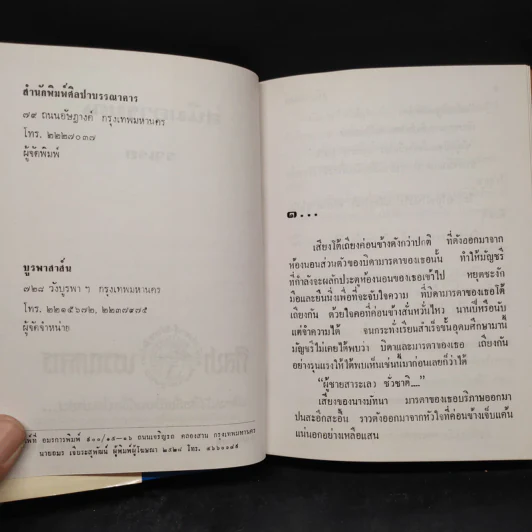 สำนักพิมพ์ศิลปาบรรณาคาร
๗๙ ถนนอัษฎางค์ กรุงเทพมหานคร
โทร. ๒๒๒๗๐๓๗
ผู้จัดพิมพ์
บูรพาสาส์น
๗๒๘ วังบูรพา ฯ กรุงเทพมหานคร
โทร. ๒๒๑๕๖๗๒, ๒๒๓๗๙๗๕
ผู้จัดจำหน่าย
ที่ อมรการพิมพ์ ๕๐๐/๑๕–๑๖ ถนนเจริญรถ คลองสาน กรุงเทพมหานคร
นายอมร เจียรสุพัฒน์ ผู้พิมพ์ผู้โฆษณา ๒๕๒๘ โทร.
๑...
เสียงโต้เถียงค่อนข้างดังกว่าปกติ ที่ดังออกมาจาก
ห้องนอนส่วนตัวของบิดามารดาของเธอนั้น ทำให้มัญชรี
ที่กำลังจะผลักประตูห้องนอนของเธอเข้าไป หยุดชะงัก
มือและยืนนิ่งเพื่อที่จะจับใจความ ที่บิดามารดาของเธอโต้
เถียงกัน ด้วยใจคอที่ค่อนข้างสั่นหวั่นไหว นานปีหรือนับ
แต่จำความได้ จนกระทั่งเรียนสำเร็จชั้นอุดมศึกษามานี้
มัญชรีไม่เคยได้พบว่า บิดาและมารดาของเธอ เถียงกัน
อย่างรุนแรงให้ได้พบเห็นเช่นนี้มาก่อนเลยก็ว่าได้
“ผู้ชายสาระเลว ชั่วชาติ....”
เสียงของนางมัทนา มารดาของเธอบริภาษออกมา
ปนสะอึกสะอื้น ราวดังออกมาจากหัวใจที่ค่อนข้างเจ็บแค้น
แน่นอกอย่างเหลือแสน